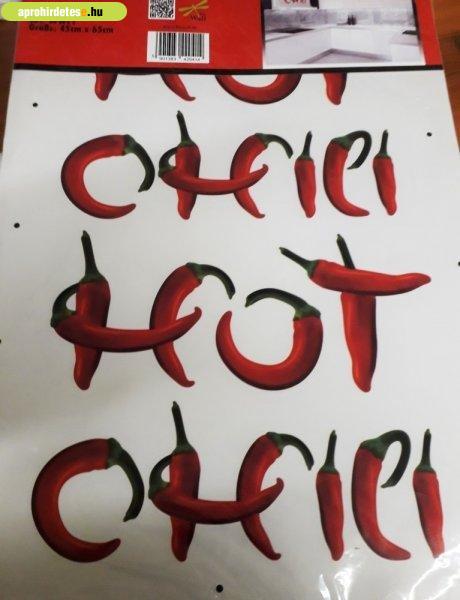 aprohirdetes.hu
Größe: 45cm x 65cm
HOT
CHILI
HOT
CHILI